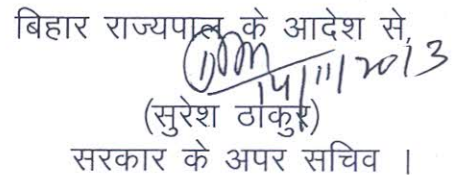 बिहार राज्यपाल के आदेश से,
14/11/2013
(सुरेश ठाकुर)
सरकार के अपर सचिव ।